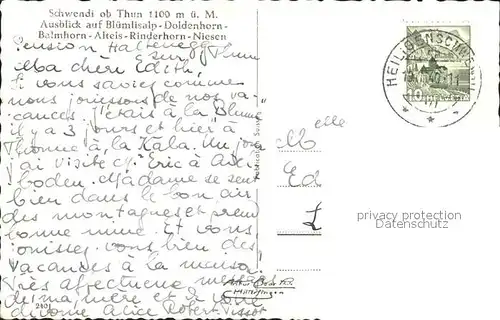 Schwendi ob Thun 1100 m ü. M.
Ausblick auf Blümlisalp-Doldenhorn-
Balmhorn-Altels-Rinderhorn-Niesen
Pension Haltenegg
s/ Thun
Ma chère Edith,
Si vous saviez comme
nous jouissons de nos va-
cances. J'étais à la "Blum
il y a 3 jours et hier à
Thoune à la Kala. Un jour
j'ai visité Eric à Adel-
boden. Madame se sent
bien dans le bon air
des montagnes et prend
bonne mine. Et vous
jouissez vous bien des
vacances à la maison
Très affectueux messages
de ma mère et à vous
Alice Robert-Tissot
2401
HEILIGENSCHWENDI
10
HELVETIA
Mlle
Ed
L
privacy protection
Datenschutz
Hilterfingen